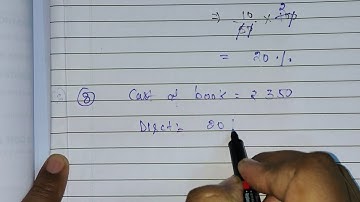 ⇒ 10/50 × 100 2
= 20 %
(8) Cost of book = ₹ 350
Disct: 80